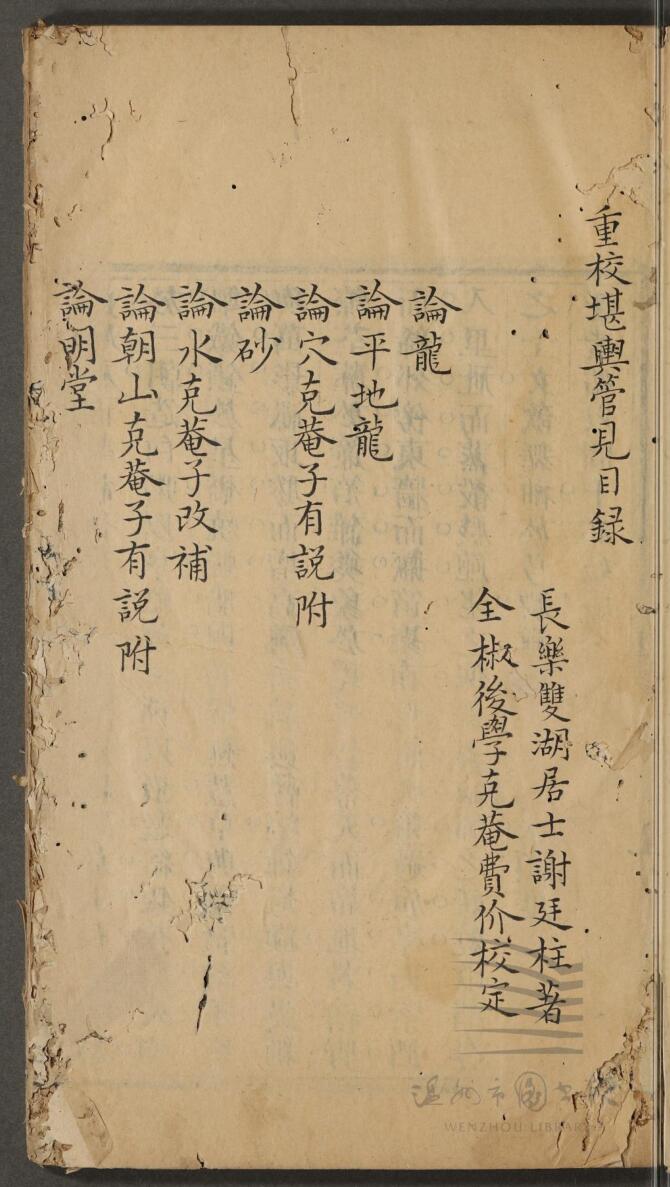 重校堪輿管見目録
長樂雙湖居士謝廷柱著
全椒後學克菴費价校定
論龍
論平地龍
論穴克菴子有説附
論砂
論水克菴子改補
論朝山克菴子有説附
論明堂
温州市图书馆
WENZHOU LIBRARY